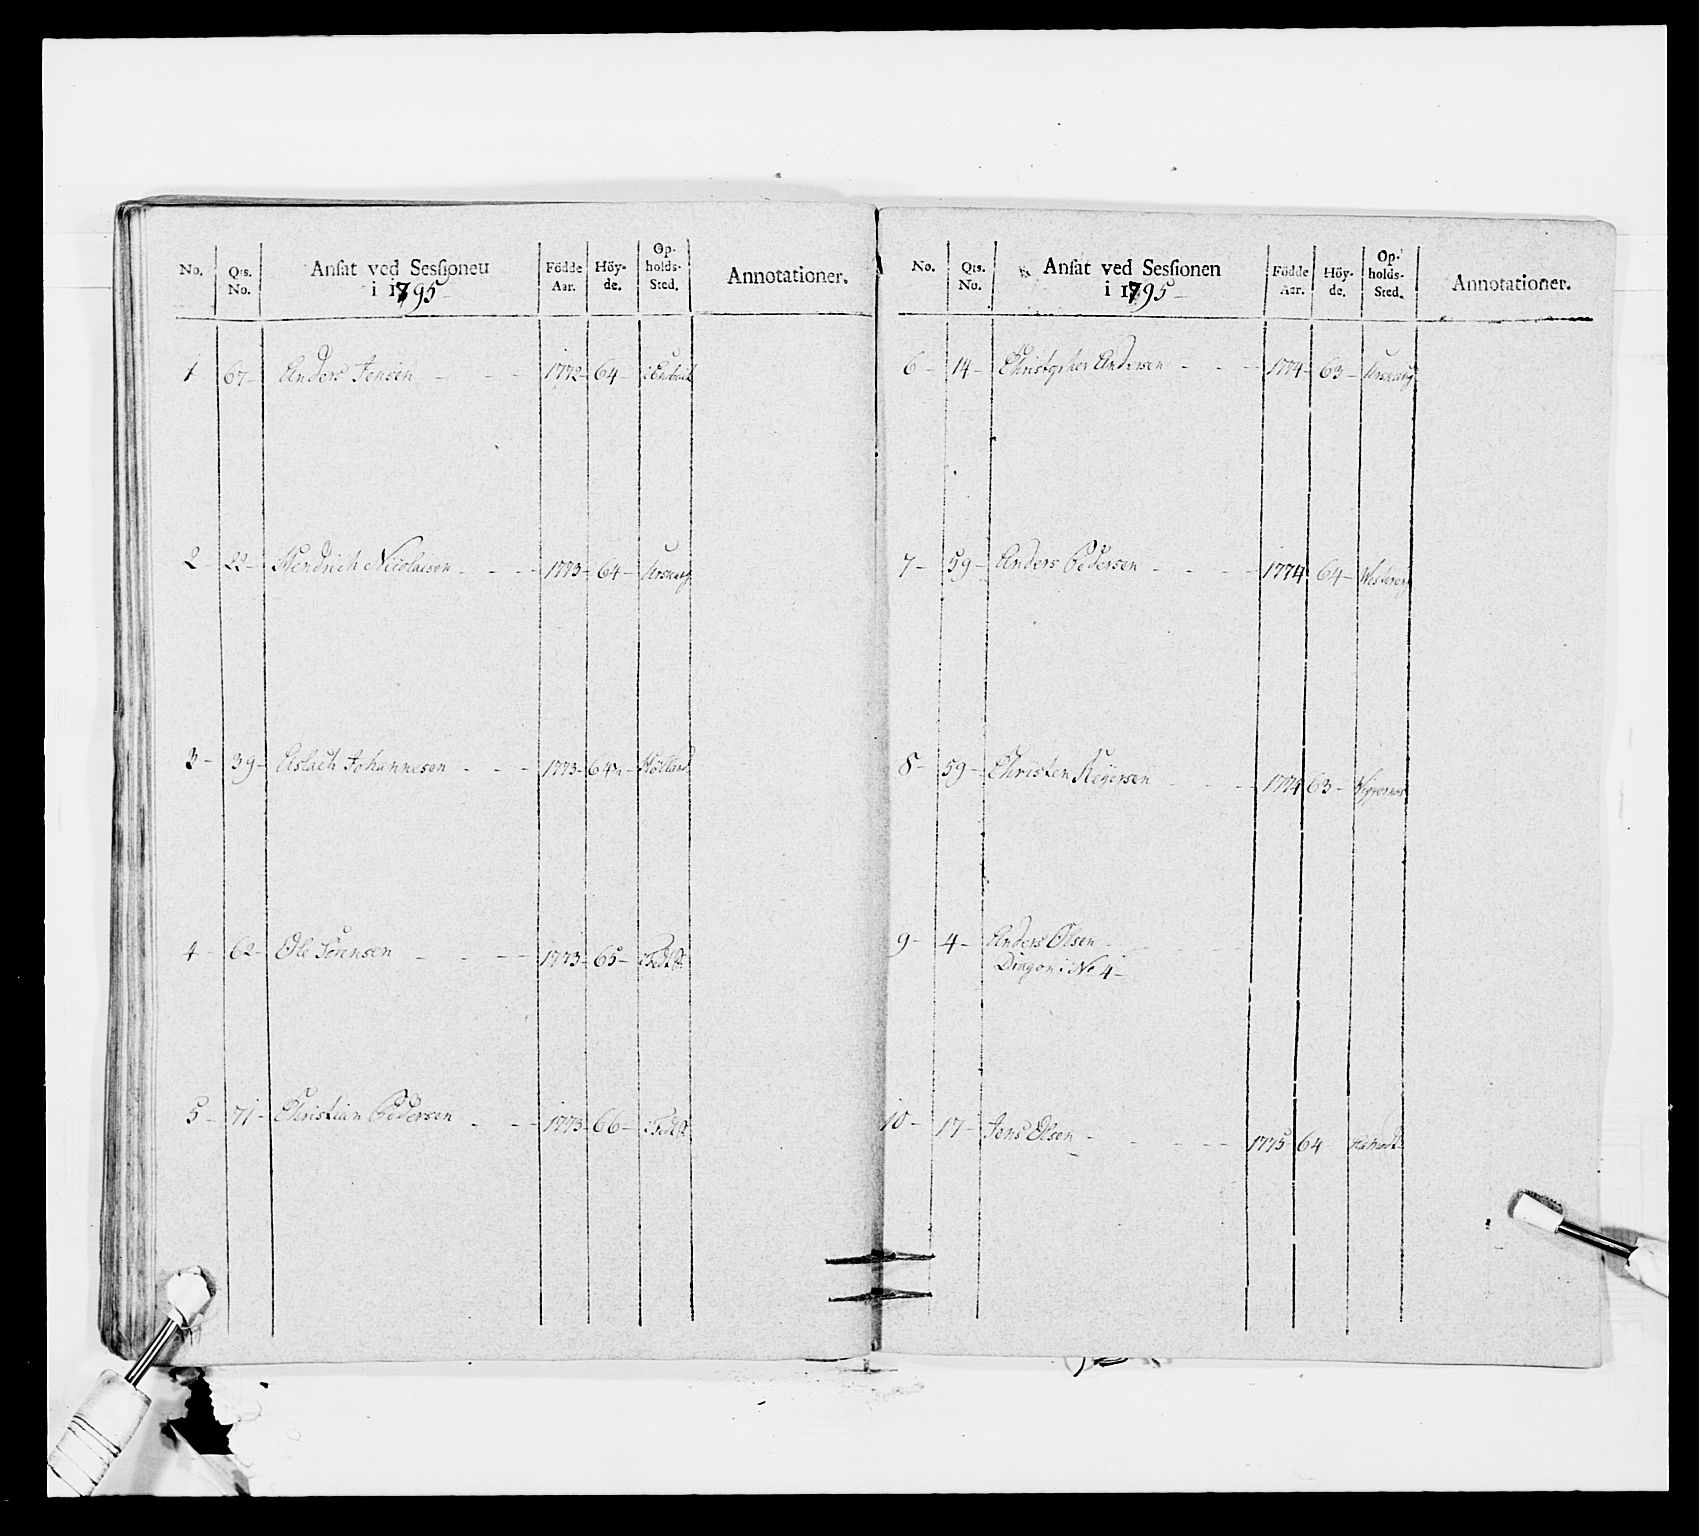 No. Qts. No. Ansat ved Sessionen i 1795 Födde Aar. Höyde. Opholds-Sted. Annotationer.
1 67 Anders Jensen 1772 64
2 22 Hendrich Nicolaisen 1773 64 Urskoug
3 39 Aslach Johannesen 1773 64½ Höland
4 62 Ole Sörensen 1773 65
5 71 Christian Pedersen 1773 66
No. Qts. No. Ansat ved Sessionen i 1795 Födde Aar. Höyde. Opholds-Sted. Annotationer.
6 14 Christopher Andersen 1774 63 Urskoug
7 59 Anders Pedersen 1774 64
8 59 Christen Reyersen 1774 63
9 4 Anders Olsen
Dragon i No 4
10 17 Jens Olsen 1775 64